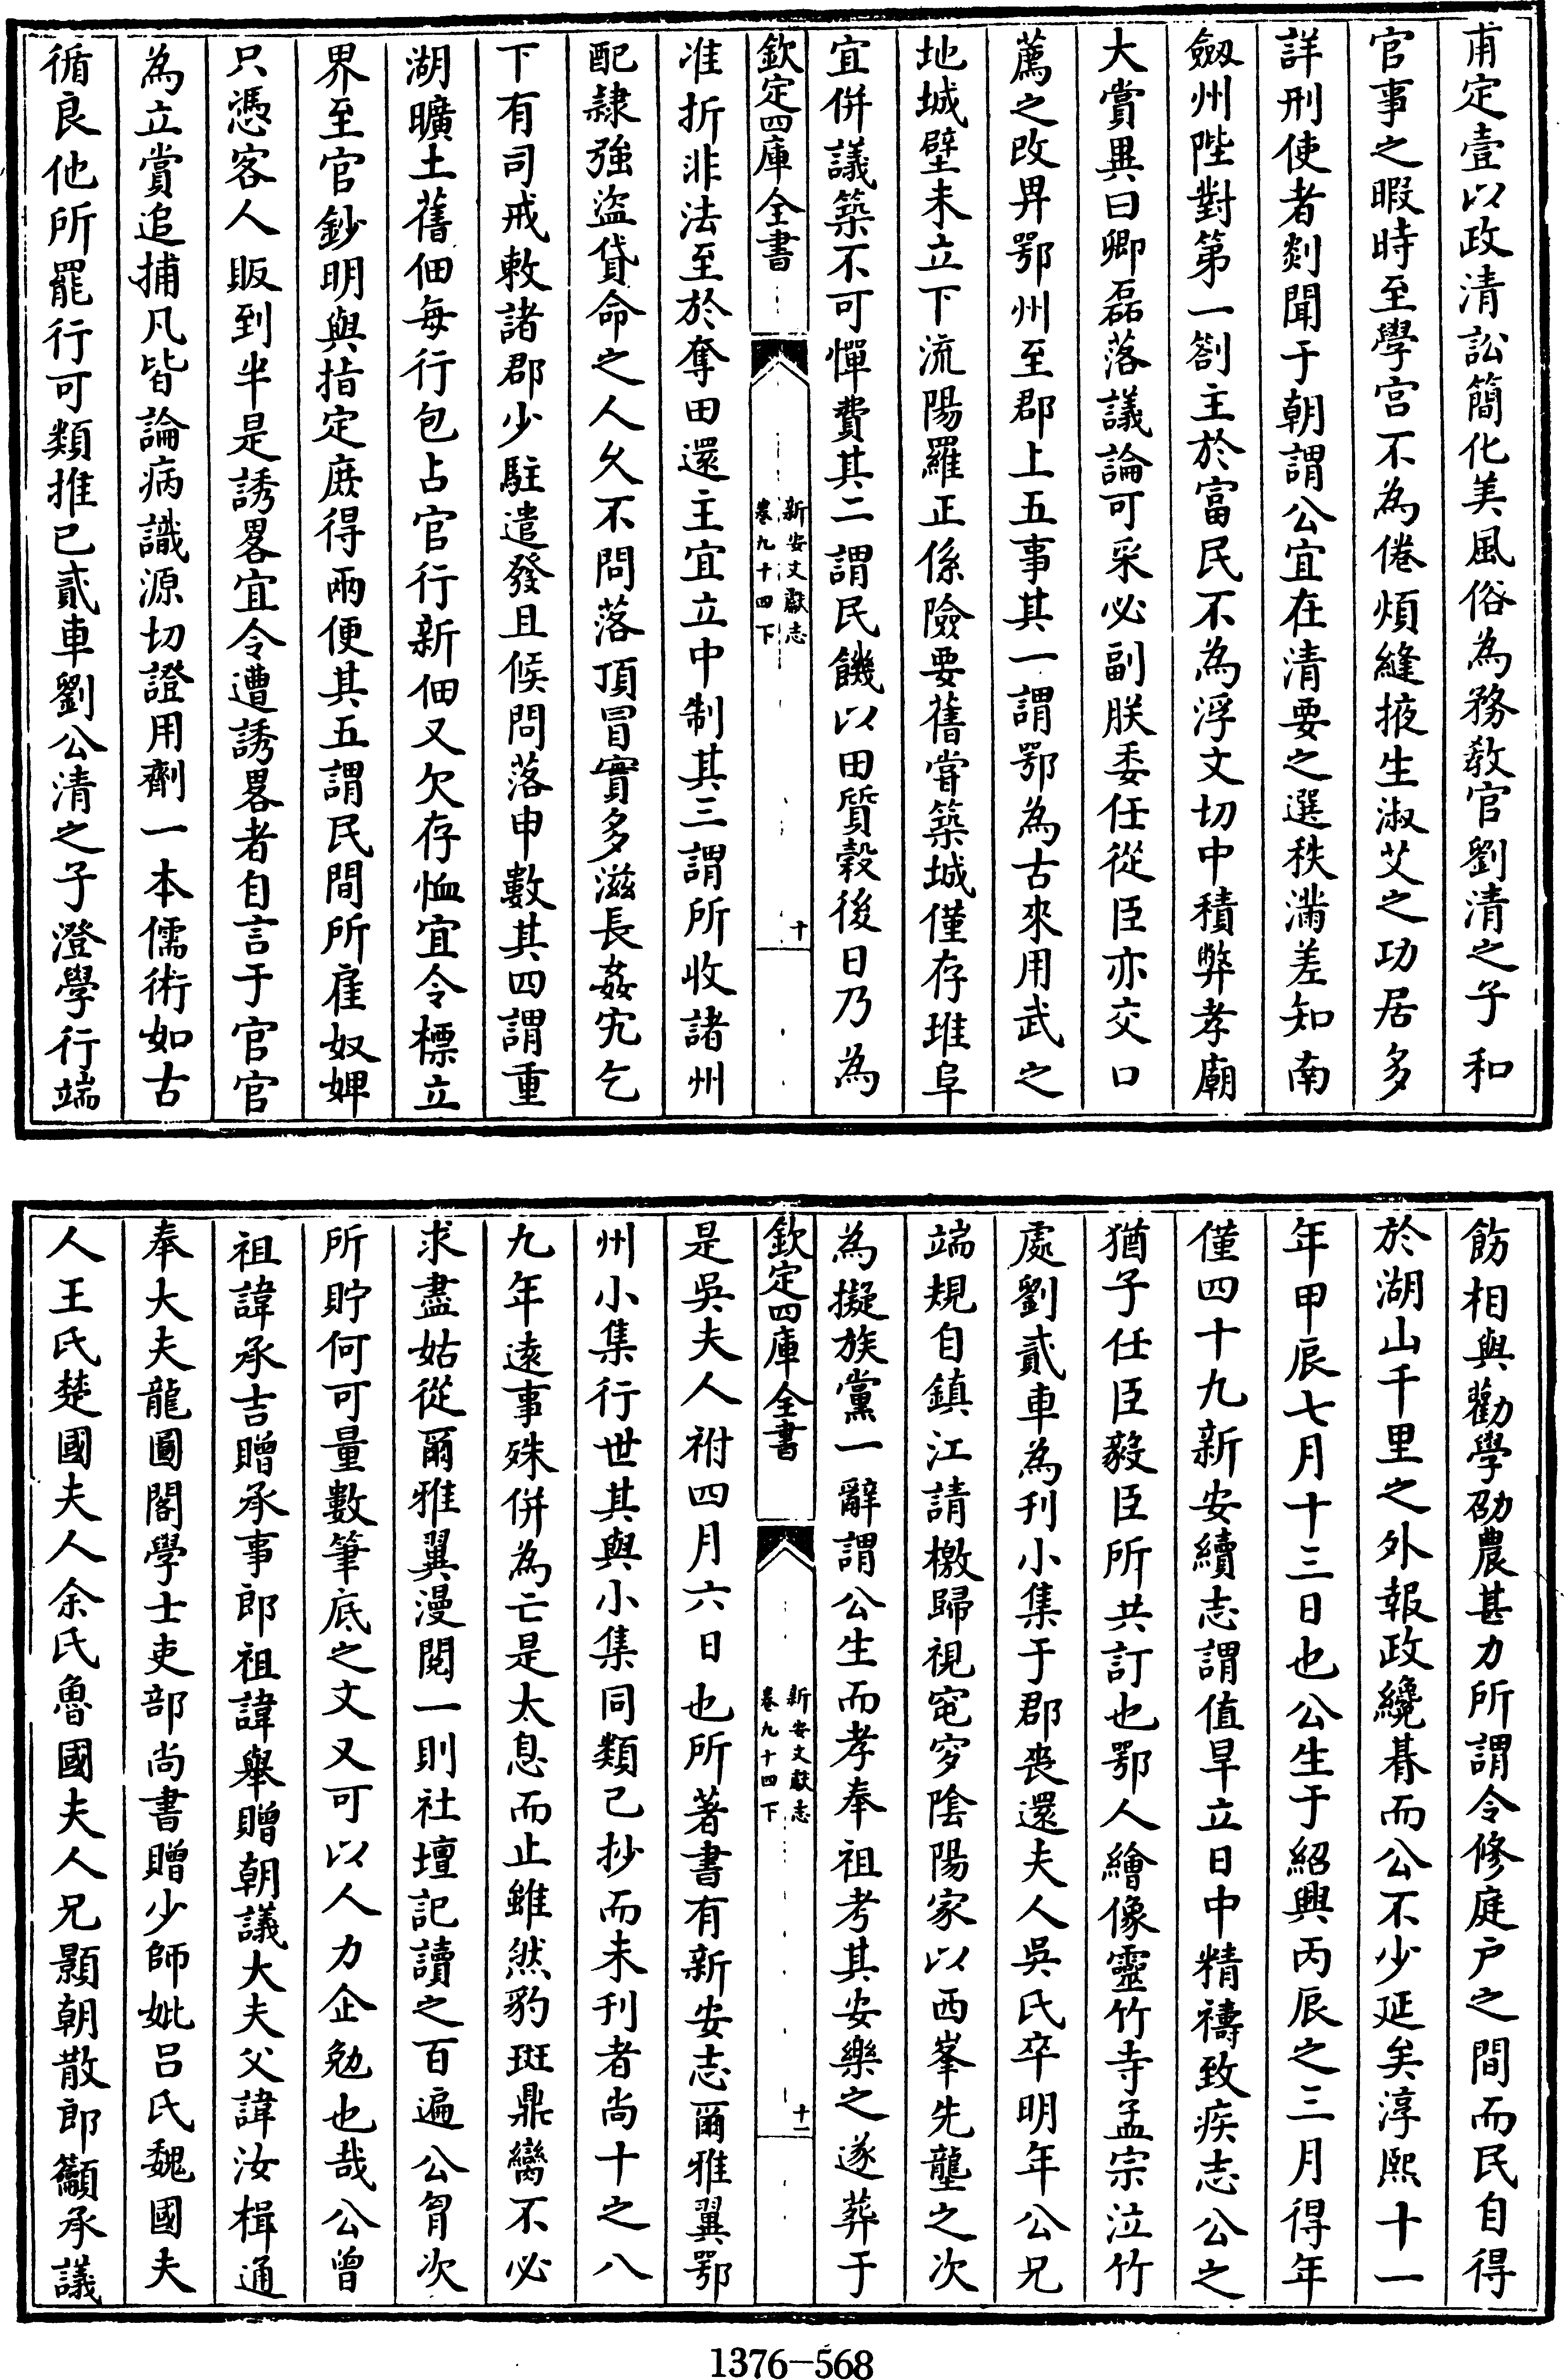 甫定壹以政清訟簡化美風俗為務教官劉清之子和
官事之暇時至學宫不為倦煩縫掖生淑艾之功居多
詳刑使者剡聞于朝謂公宜在清要之選秩滿差知南
劔州陛對第一劄主於富民不為浮文切中積弊孝廟
大賞異曰卿磊落議論可采必副朕委任從臣亦交口
薦之改畀鄂州至郡上五事其一謂鄂為古來用武之
地城壁未立下流陽羅正係險要舊嘗築城僅存堆阜
宜併議築不可憚費其二謂民饑以田質穀後日乃為
欽定四庫全書
新安文獻志
卷九十四下
十
准折非法至於奪田還主宜立中制其三謂所收諸州
配隸強盜貸命之人久不問落頂冒實多滋長姦宄乞
下有司戒敕諸郡少駐遣發且候問落申數其四謂重
湖曠土舊佃每行包占官行新佃又欠存恤宜令標立
界至官鈔明與指定庶得兩便其五謂民間所雇奴婢
只憑客人販到半是誘畧宜令遭誘畧者自言于官官
為立賞追捕凡皆論病識源切證用劑一本儒術如古
循良他所罷行可類推已貳車劉公清之子澄學行端
飭相與勸學劭農甚力所謂令修庭户之間而民自得
於湖山千里之外報政纔朞而公不少延矣淳熙十一
年甲辰七月十三日也公生于紹興丙辰之三月得年
僅四十九新安續志謂值旱立日中精禱致疾志公之
猶子任臣毅臣所共訂也鄂人繪像靈竹寺孟宗泣竹
處劉貳車為刊小集于郡喪還夫人吳氏卒明年公兄
端規自鎮江請檄歸視窀穸陰陽家以西峯先壟之次
為擬族黨一辭謂公生而孝奉祖考其安樂之遂葬于
欽定四庫全書
新安文獻志
卷九十四下
十一
是吳夫人祔四月六日也所著書有新安志爾雅翼鄂
州小集行世其與小集同類已抄而未刊者尚十之八
九年遠事殊併為亡是太息而止雖然豹斑鼎臠不必
求盡姑從爾雅翼漫閱一則社壇記讀之百遍公胷次
所貯何可量數筆底之文又可以人力企勉也哉公曾
祖諱承吉贈承事郎祖諱舉贈朝議大夫父諱汝楫通
奉大夫龍圖閣學士吏部尚書贈少師妣吕氏魏國夫
人王氏楚國夫人余氏魯國夫人兄顥朝散郎籲承議
1376—568